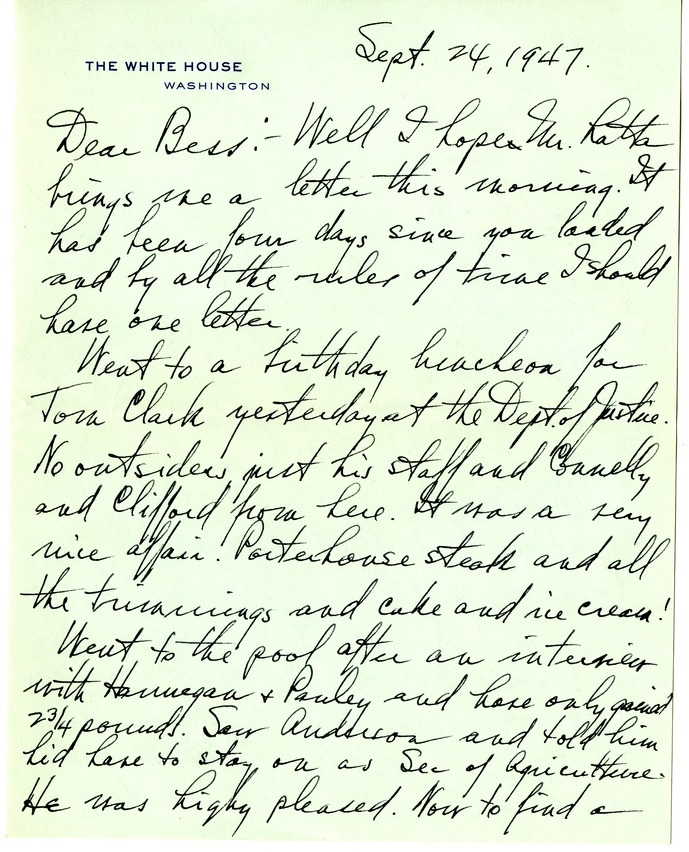 Sept. 24, 1947.
THE WHITE HOUSE
WASHINGTON
Dear Bess:- Well I hope Mr. Latta
brings me a letter this morning. It
has been four days since you loaded
and by all the rules of time I should
have one letter.
Went to a birthday luncheon for
Tom Clark yesterday at the Dept. of Justice.
No outsiders just his staff and Connelly
and Clifford from here. It was a very
nice affair. Porterhouse steak and all
the trimmings and cake and ice cream!
Went to the pool after an interview
with Hannegan & Pauley and have only gained
2 3/4 pounds. Saw Anderson and told him
he'd have to stay on as Sec of Agriculture.
He was highy pleased. Now to find a